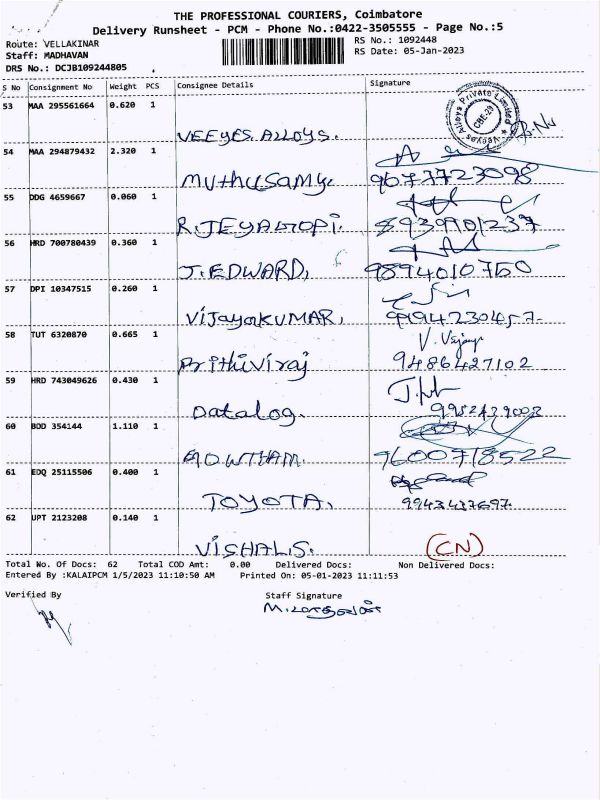 THE PROFESSIONAL COURIERS, Coimbatore
Delivery Runsheet - PCM - Phone No.:0422-3505555 - Page No.:5
Route: VELLAKINAR RS No.: 1092448
Staff: MADHAVAN RS Date: 05-Jan-2023
DRS No.: DCJB109244805
S No Consignment No Weight PCS Consignee Details Signature
53 MAA 295561664 0.620 1
VEEYES. ALLOYS.
Veeyes Alloys Private Limited
CBE-29
54 MAA 294879432 2.320 1
Muthusamy. 9677723098
55 DDG 4659667 0.060 1
R. JEYAGOPI. 8939901237
56 HRD 700780439 0.360 1
J. EDWARD, 9894010760
57 DPI 10347515 0.260 1
VIJayakUMAR, 9994230457-
58 TUT 6320870 0.665 1
V. Vijay
Prithiviraj 9486427102
59 HRD 743049626 0.430 1
Datalog. 9952439003
60 BDD 354144 1.110 1
GOWTHAM. 9600718522
61 EDQ 25115506 0.400 1
TOYOTA, 9943437697.
62 UPT 2123208 0.140 1
VISHAL.S. (CN)
Total No. Of Docs: 62 Total COD Amt: 0.00 Delivered Docs: Non Delivered Docs:
Entered By :KALAIPCM 1/5/2023 11:10:50 AM Printed On: 05-01-2023 11:11:53
Verified By Staff Signature